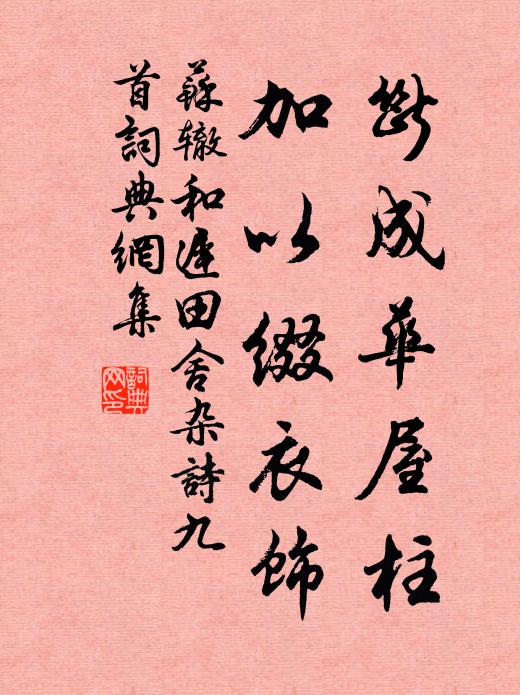 斲成華屋柱
加以綴衣飾
蘇辙和遲田舍杂詩九
首詞典網集
詞典
网印